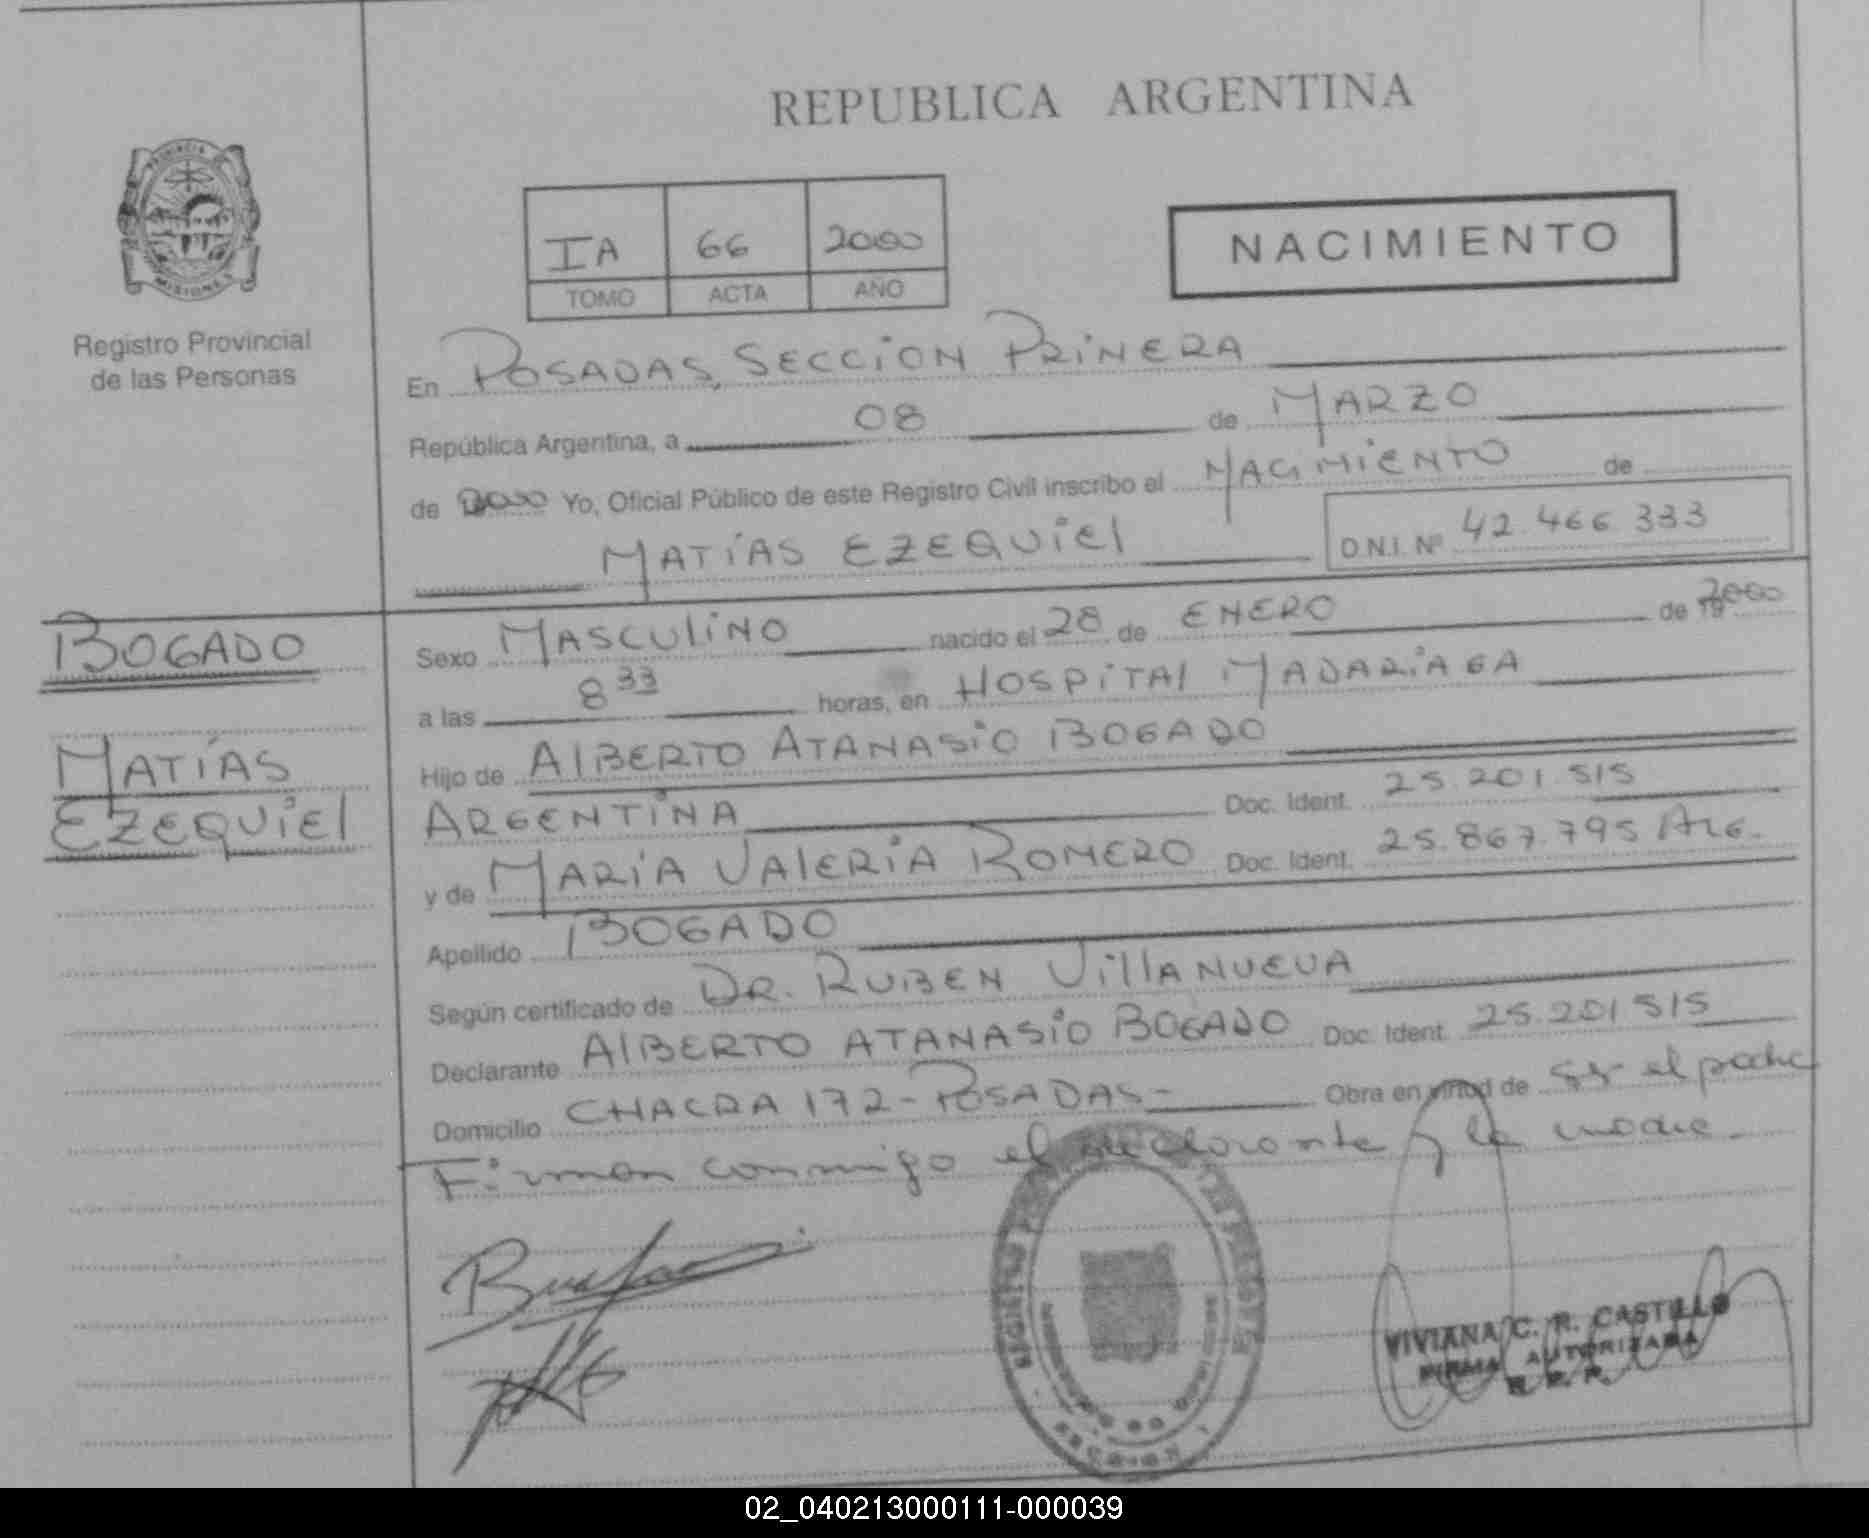 REPUBLICA ARGENTINA
PROVINCIA DE
MISIONES
Registro Provincial
de las Personas
IA 66 2000
TOMO ACTA AÑO
NACIMIENTO
En POSADAS, SECCION PRIMERA
República Argentina, a 08 de MARZO
de 2000 Yo, Oficial Público de este Registro Civil inscribo el NACIMIENTO de
MATÍAS EZEQUIEL D.N.I. Nº 42.466.333
BOGADO
MATÍAS
EZEQUIEL
Sexo MASCULINO nacido el 28 de ENERO de 2000
a las 8 33 horas, en HOSPITAL MADARIAGA
Hijo de ALBERTO ATANASIO BOGADO
ARGENTINA Doc. Ident. 25.201.515
y de MARIA VALERIA ROMERO Doc. Ident. 25.867.795 ARG.
Apellido BOGADO
Según certificado de DR. RUBEN VILLANUEVA
Declarante ALBERTO ATANASIO BOGADO Doc. Ident. 25.201.515
Domicilio CHACRA 172 - POSADAS - Obra en virtud de ser el padre
Firman conmigo el declarante y la madre.
VIVIANA C. R. CASTILLO
FIRMA AUTORIZADA
R. P. P.
02_040213000111-000039